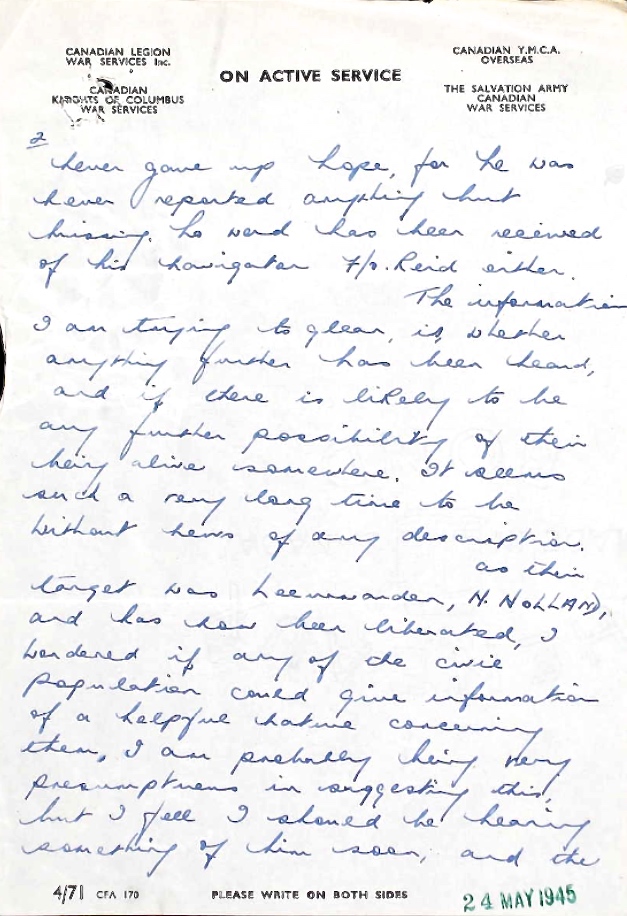 CANADIAN LEGION
WAR SERVICES Inc.
CANADIAN
KNIGHTS OF COLUMBUS
WAR SERVICES
ON ACTIVE SERVICE
CANADIAN Y.M.C.A.
OVERSEAS
THE SALVATION ARMY
CANADIAN
WAR SERVICES
2
never gave up hope, for he was
never reported anything but
missing. No word has been received
of his navigator F/O. Reid either.
The information
I am trying to glean, is, whether
anything further has been heard,
and if there is likely to be
any further possibility of their
being alive somewhere. It seems
such a very long time to be
without news of any description.
as their
target was Leeuwarden, N. HOLLAND,
and has now been liberated, I
wondered if any of the civic
population could give information
of a helpful nature concerning
them, I am probably being very
presumptuous in suggesting this,
but I feel I should be hearing
something of him soon, and the
4/71 CFA 170
PLEASE WRITE ON BOTH SIDES
24 MAY 1945